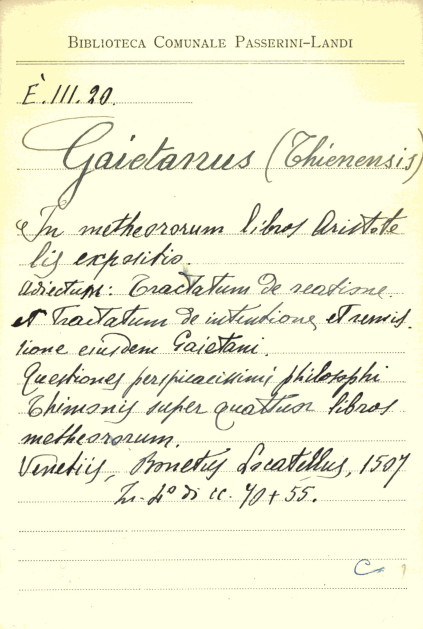 BIBLIOTECA COMUNALE PASSERINI-LANDI
È.III.20.
Gaietanus (Thienensis)
In metheororum libros Aristote
lis expositio.
adiectum: Tractatum de reatione
et Tractatum de intentione et remis
sione eiusdem Gaietani.
Questiones perspicacissimi philosophi
Thimonis super quattuor libros
metheororum.
Venetiis, Bonetus Locatellus, 1507
In-4° di cc. 70 + 55.
C